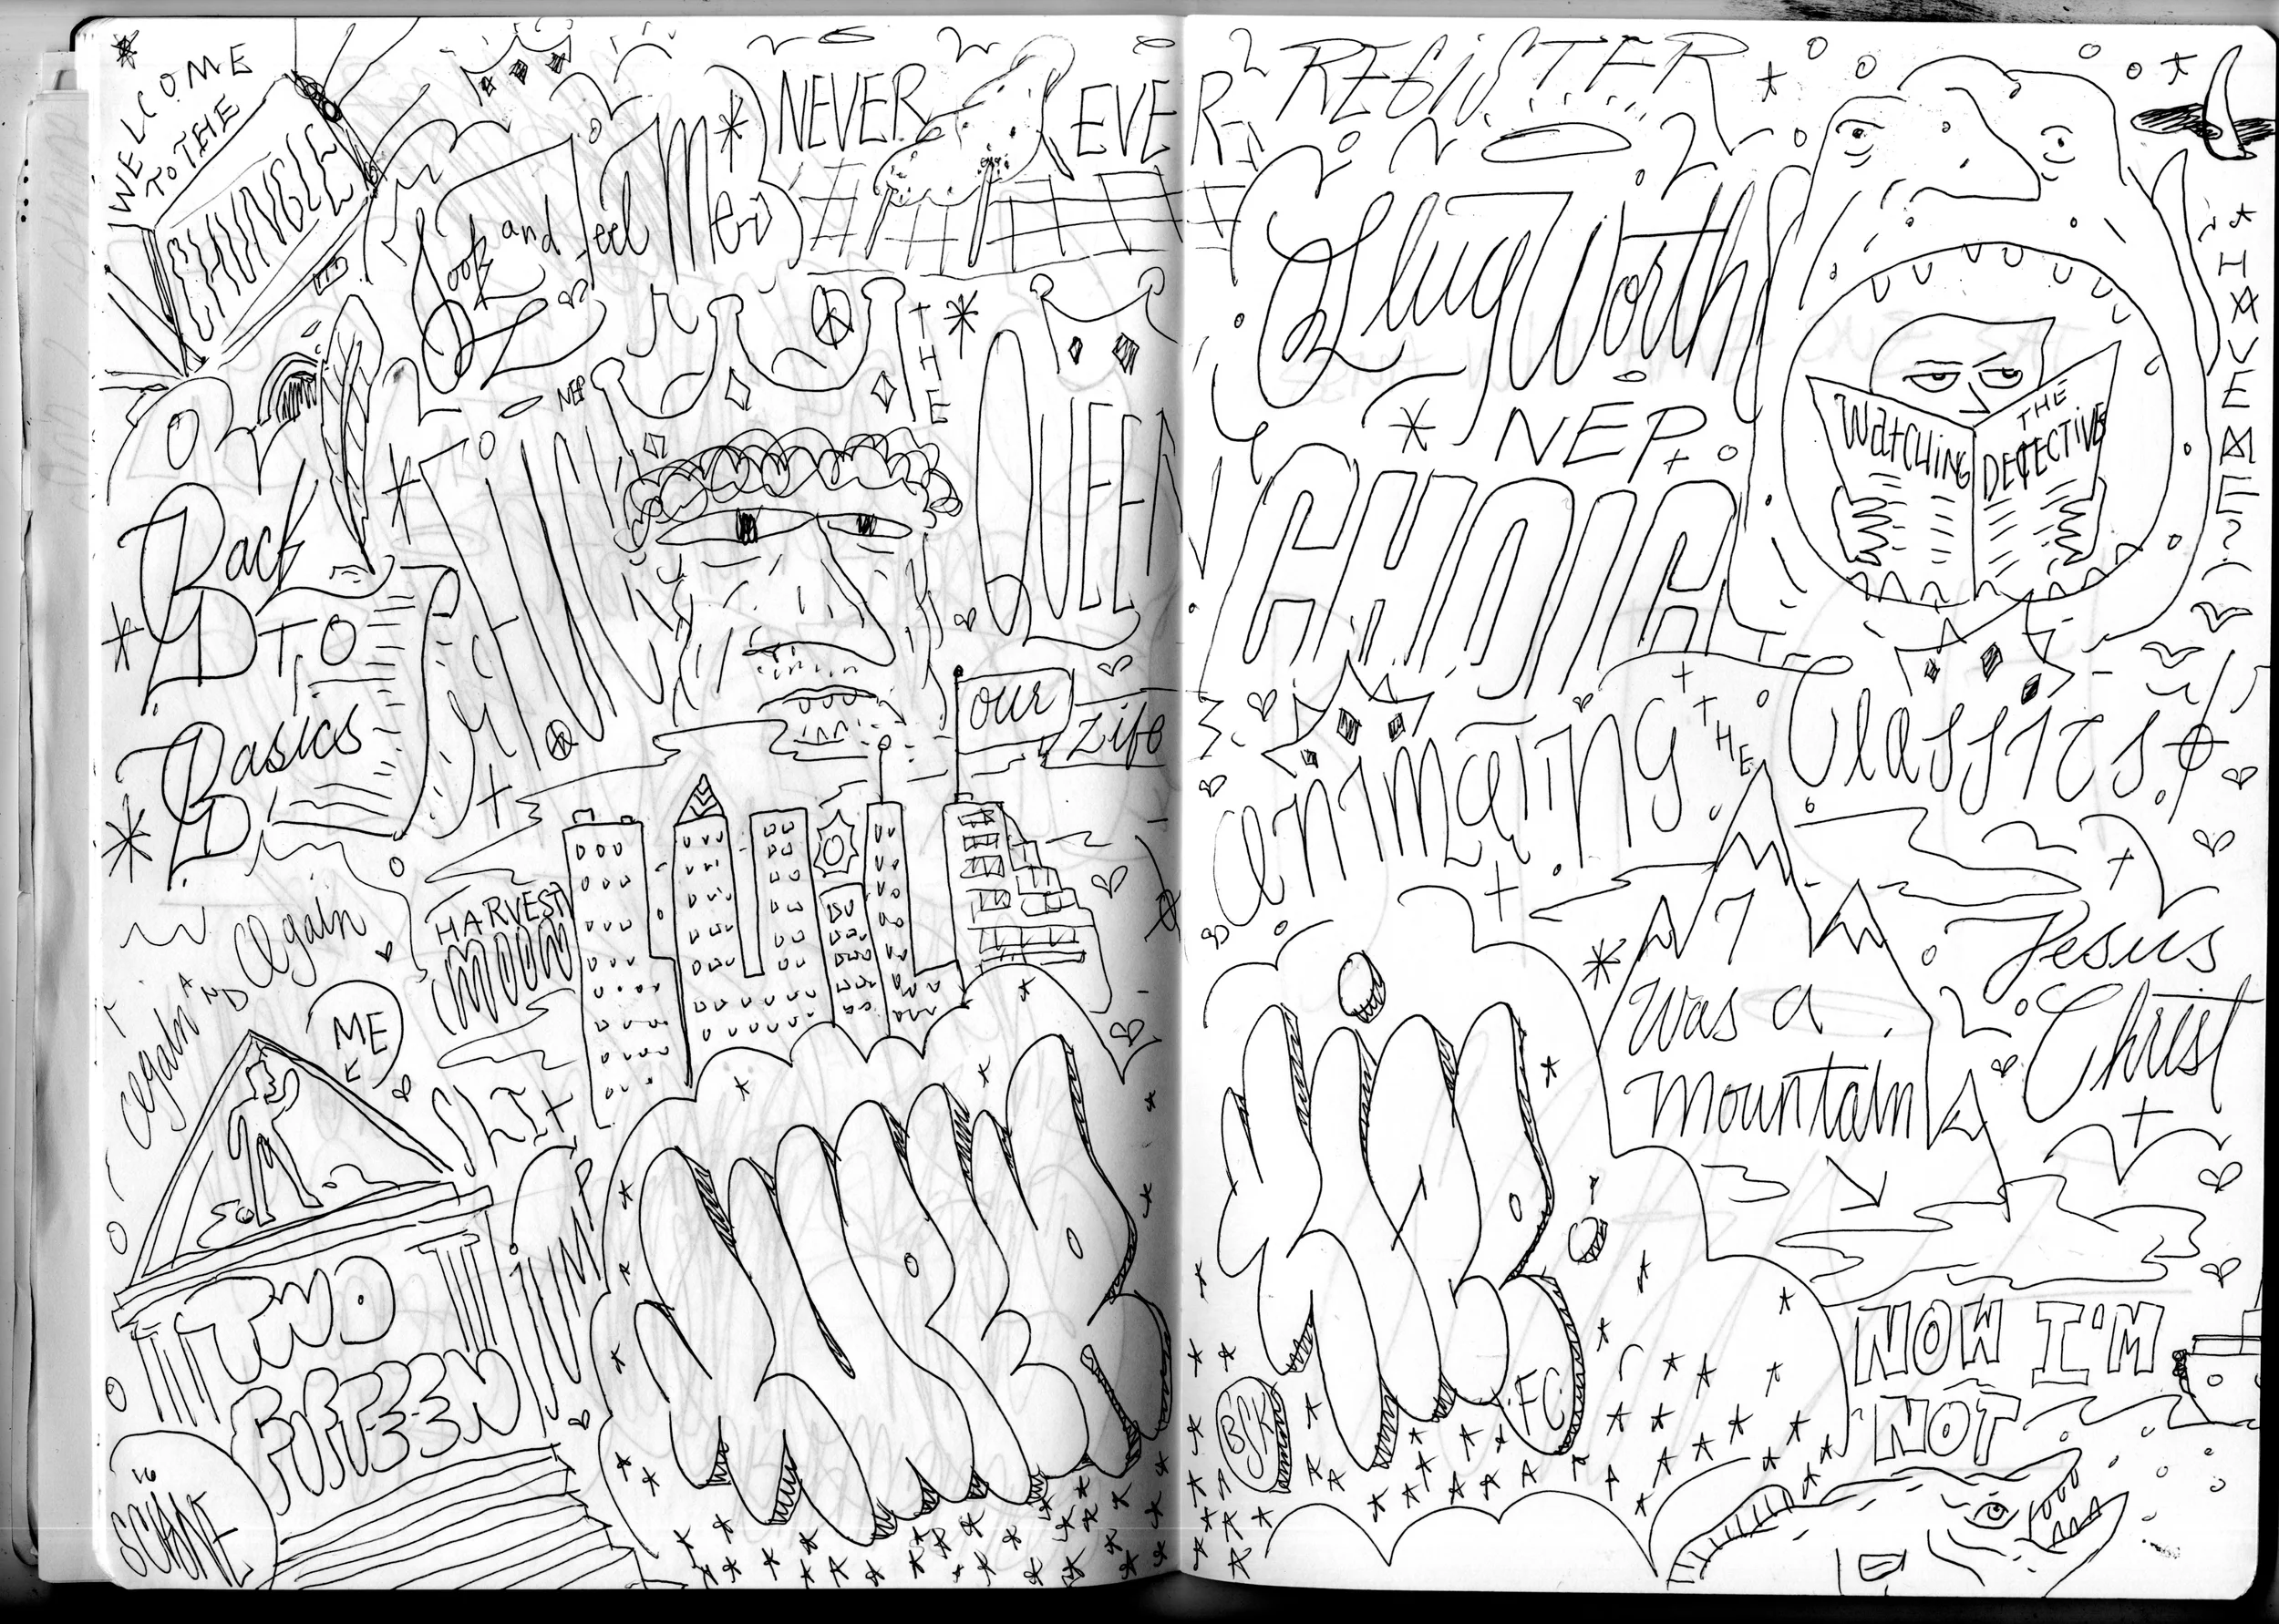 WELCOME
TO THE
Look and feel Me
NEVER EVER
REGISTER
SlugWorth
NEP
HAVE ME?
WatCHiNG
THE
DETECTIVE
NEP
THE
QUEEN
Back
TO
Basics
our
Life
animating THE Classics
HARVEST
MOON
again AND again
ME
I
was a
mountain
Jesus
Christ
SLIT
JUMP
TWO
FIFTEEN
NOW I'M
NOT
BSK
FC